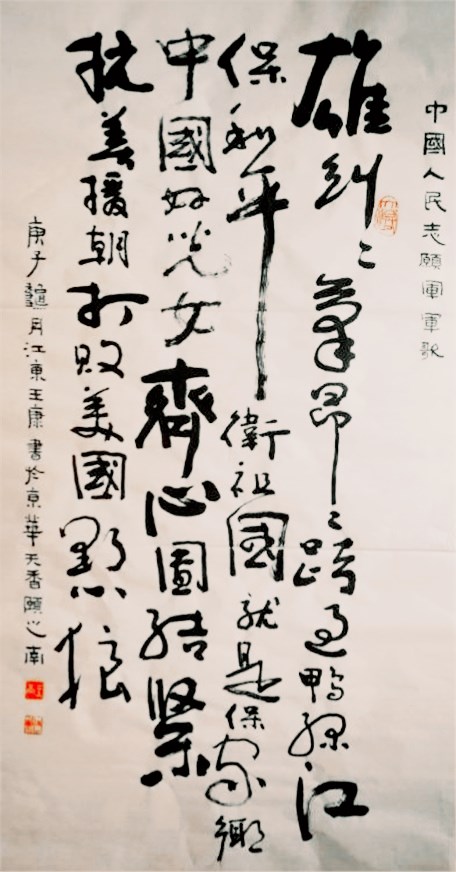 中國人民志願軍軍歌
雄糾〻氣昂〻跨過鴨綠江
保和平衛祖國就是保家鄉
中國好兒女齊心團結緊
抗美援朝打敗美國野心狼
庚子龝月江東王康書於京華天香頤之南